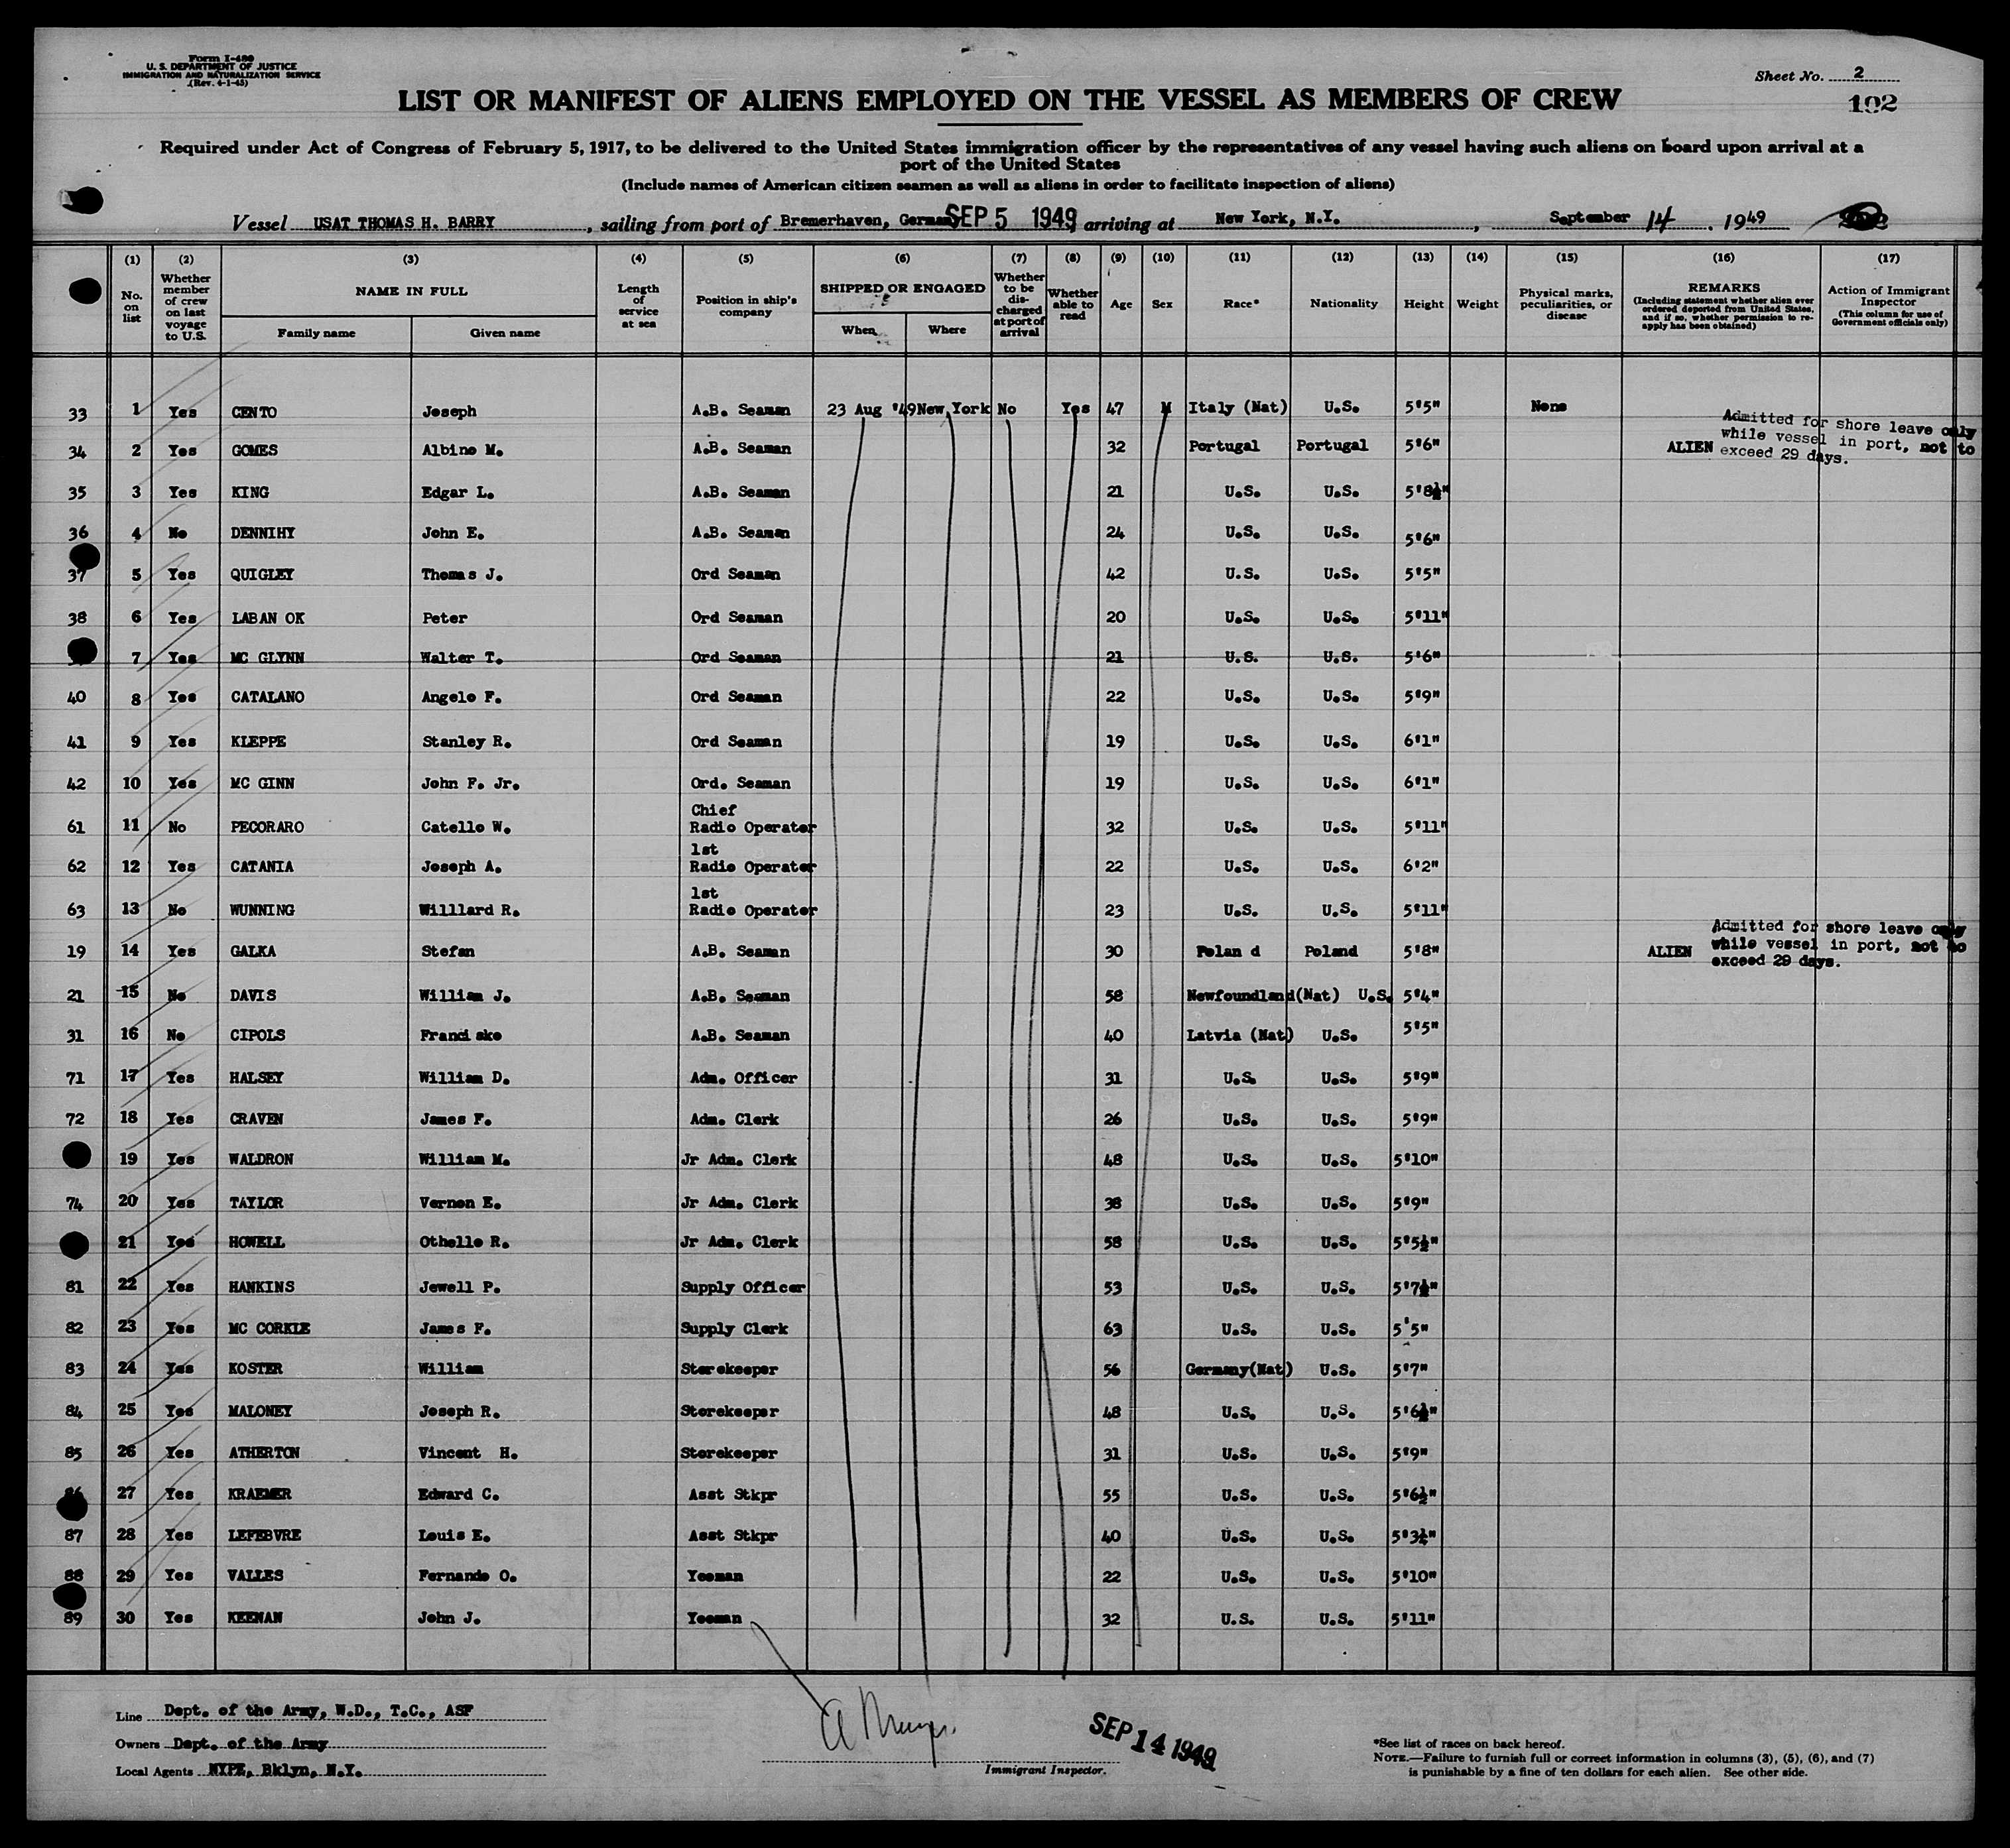 Form I-480
U. S. DEPARTMENT OF JUSTICE
IMMIGRATION AND NATURALIZATION SERVICE
(Rev. 4-1-45)
Sheet No. 2
102
LIST OR MANIFEST OF ALIENS EMPLOYED ON THE VESSEL AS MEMBERS OF CREW
Required under Act of Congress of February 5, 1917, to be delivered to the United States immigration officer by the representatives of any vessel having such aliens on board upon arrival at a
port of the United States
(Include names of American citizen seamen as well as aliens in order to facilitate inspection of aliens)
Vessel USAT THOMAS H. BARRY, sailing from port of Bremerhaven, Germany SEP 5 1949, arriving at New York, N.Y., September 14, 1949
(1) No. on list (2) Whether member of crew on last voyage to U.S. (3) NAME IN FULL Family name Given name (4) Length of service at sea (5) Position in ship's company (6) SHIPPED OR ENGAGED When Where (7) Whether to be discharged at port of arrival (8) Whether able to read (9) Age (10) Sex (11) Race* (12) Nationality (13) Height (14) Weight (15) Physical marks, peculiarities, or disease (16) REMARKS (Including statement whether alien ever ordered deported from United States, and if so, whether permission to re-apply has been obtained) (17) Action of Immigrant Inspector (This column for use of Government officials only)
33 1 Yes CENTO Joseph A.B. Seaman 23 Aug '49 New York No Yes 47 M Italy (Nat) U.S. 5'5" None
34 2 Yes GOMES Albino M. A.B. Seaman 32 Portugal Portugal 5'6" ALIEN Admitted for shore leave only while vessel in port, not to exceed 29 days.
35 3 Yes KING Edgar L. A.B. Seaman 21 U.S. U.S. 5'8½"
36 4 No DENNIHY John E. A.B. Seaman 24 U.S. U.S. 5'6"
37 5 Yes QUIGLEY Thomas J. Ord Seaman 42 U.S. U.S. 5'5"
38 6 Yes LABAN OK Peter Ord Seaman 20 U.S. U.S. 5'11"
7 Yes MC GLYNN Walter T. Ord Seaman 21 U.S. U.S. 5'6"
40 8 Yes CATALANO Angelo F. Ord Seaman 22 U.S. U.S. 5'9"
41 9 Yes KLEPPE Stanley R. Ord Seaman 19 U.S. U.S. 6'1"
42 10 Yes MC GINN John F. Jr. Ord. Seaman 19 U.S. U.S. 6'1"
61 11 No PECORARO Catello W. Chief Radio Operator 32 U.S. U.S. 5'11"
62 12 Yes CATANIA Joseph A. 1st Radio Operator 22 U.S. U.S. 6'2"
63 13 No WUNNING Willlard R. 1st Radio Operator 23 U.S. U.S. 5'11"
19 14 Yes GALKA Stefan A.B. Seaman 30 Polan d Poland 5'8" ALIEN Admitted for shore leave only while vessel in port, not to exceed 29 days.
21 15 No DAVIS William J. A.B. Seaman 58 Newfoundland(Nat) U.S. 5'4"
31 16 No CIPOLS Franci sko A.B. Seaman 40 Latvia (Nat) U.S. 5'5"
71 17 Yes HALSEY William D. Adm. Officer 31 U.S. U.S. 5'9"
72 18 Yes CRAVEN James F. Adm. Clerk 26 U.S. U.S. 5'9"
19 Yes WALDRON William M. Jr Adm. Clerk 48 U.S. U.S. 5'10"
74 20 Yes TAYLOR Vernon E. Jr Adm. Clerk 38 U.S. U.S. 5'9"
21 Yes HOWELL Othello R. Jr Adm. Clerk 58 U.S. U.S. 5'5½"
81 22 Yes HANKINS Jewell P. Supply Officer 53 U.S. U.S. 5'7½"
82 23 Yes MC CORKLE James F. Supply Clerk 63 U.S. U.S. 5'5"
83 24 Yes KOSTER William Storekeeper 56 Germany(Nat) U.S. 5'7"
84 25 Yes MALONEY Joseph R. Storekeeper 48 U.S. U.S. 5'6½"
85 26 Yes ATHERTON Vincent H. Storekeeper 31 U.S. U.S. 5'9"
86 27 Yes KRAEMER Edward C. Asst Stkpr 55 U.S. U.S. 5'6½"
87 28 Yes LEFEBVRE Louis E. Asst Stkpr 40 U.S. U.S. 5'3½"
88 29 Yes VALLES Fernando O. Yeoman 22 U.S. U.S. 5'10"
89 30 Yes KEENAN John J. Yeoman 32 U.S. U.S. 5'11"
Line Dept. of the Army, W.D., T.C., ASF
Owners Dept. of the Army
Local Agents NYPE, Bklyn, N.Y.
SEP 14 1949
Immigrant Inspector.
*See list of races on back hereof.
NOTE.—Failure to furnish full or correct information in columns (3), (5), (6), and (7)
is punishable by a fine of ten dollars for each alien. See other side.